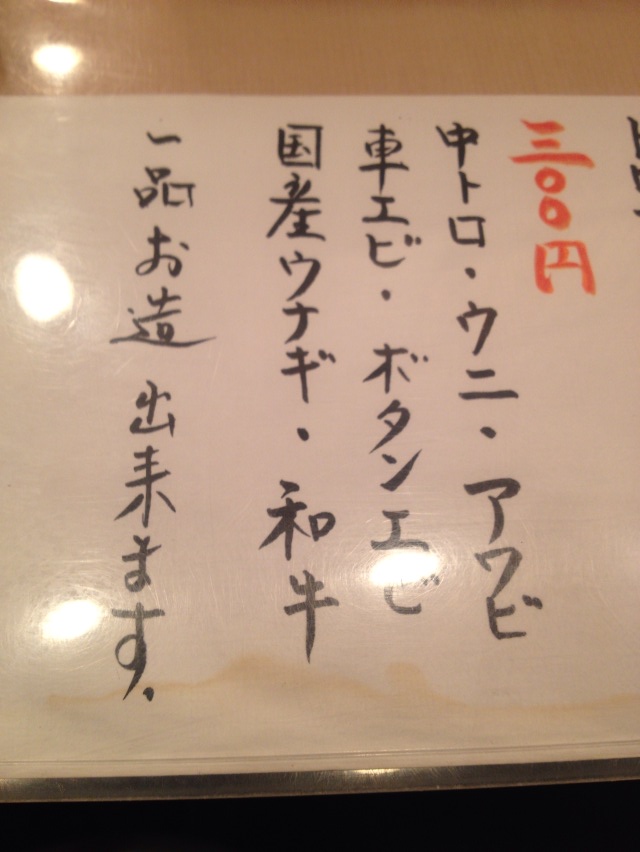 三〇〇円
中トロ・ウニ・アワビ
車エビ・ボタンエビ
国産ウナギ・和牛
一品お造出来ます。